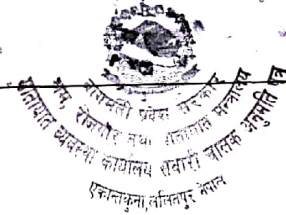 बागमती प्रदेश सरकार
श्रम, रोजगार तथा यातायात मन्त्रालय
यातायात व्यवस्था कार्यालय सवारी चालक अनुमति पत्र
एकान्तकुना, ललितपुर नेपाल